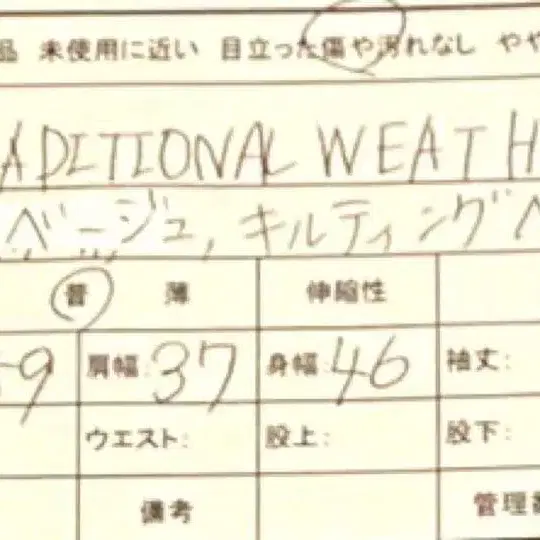 品 未使用に近い 目立った傷や汚れなし やや
ADITIONAL WEATH
ベージュ, キルティング
普 薄 伸縮性
9 肩幅:37 身幅:46 袖丈:
ウエスト: 股上: 股下:
備考 管理番